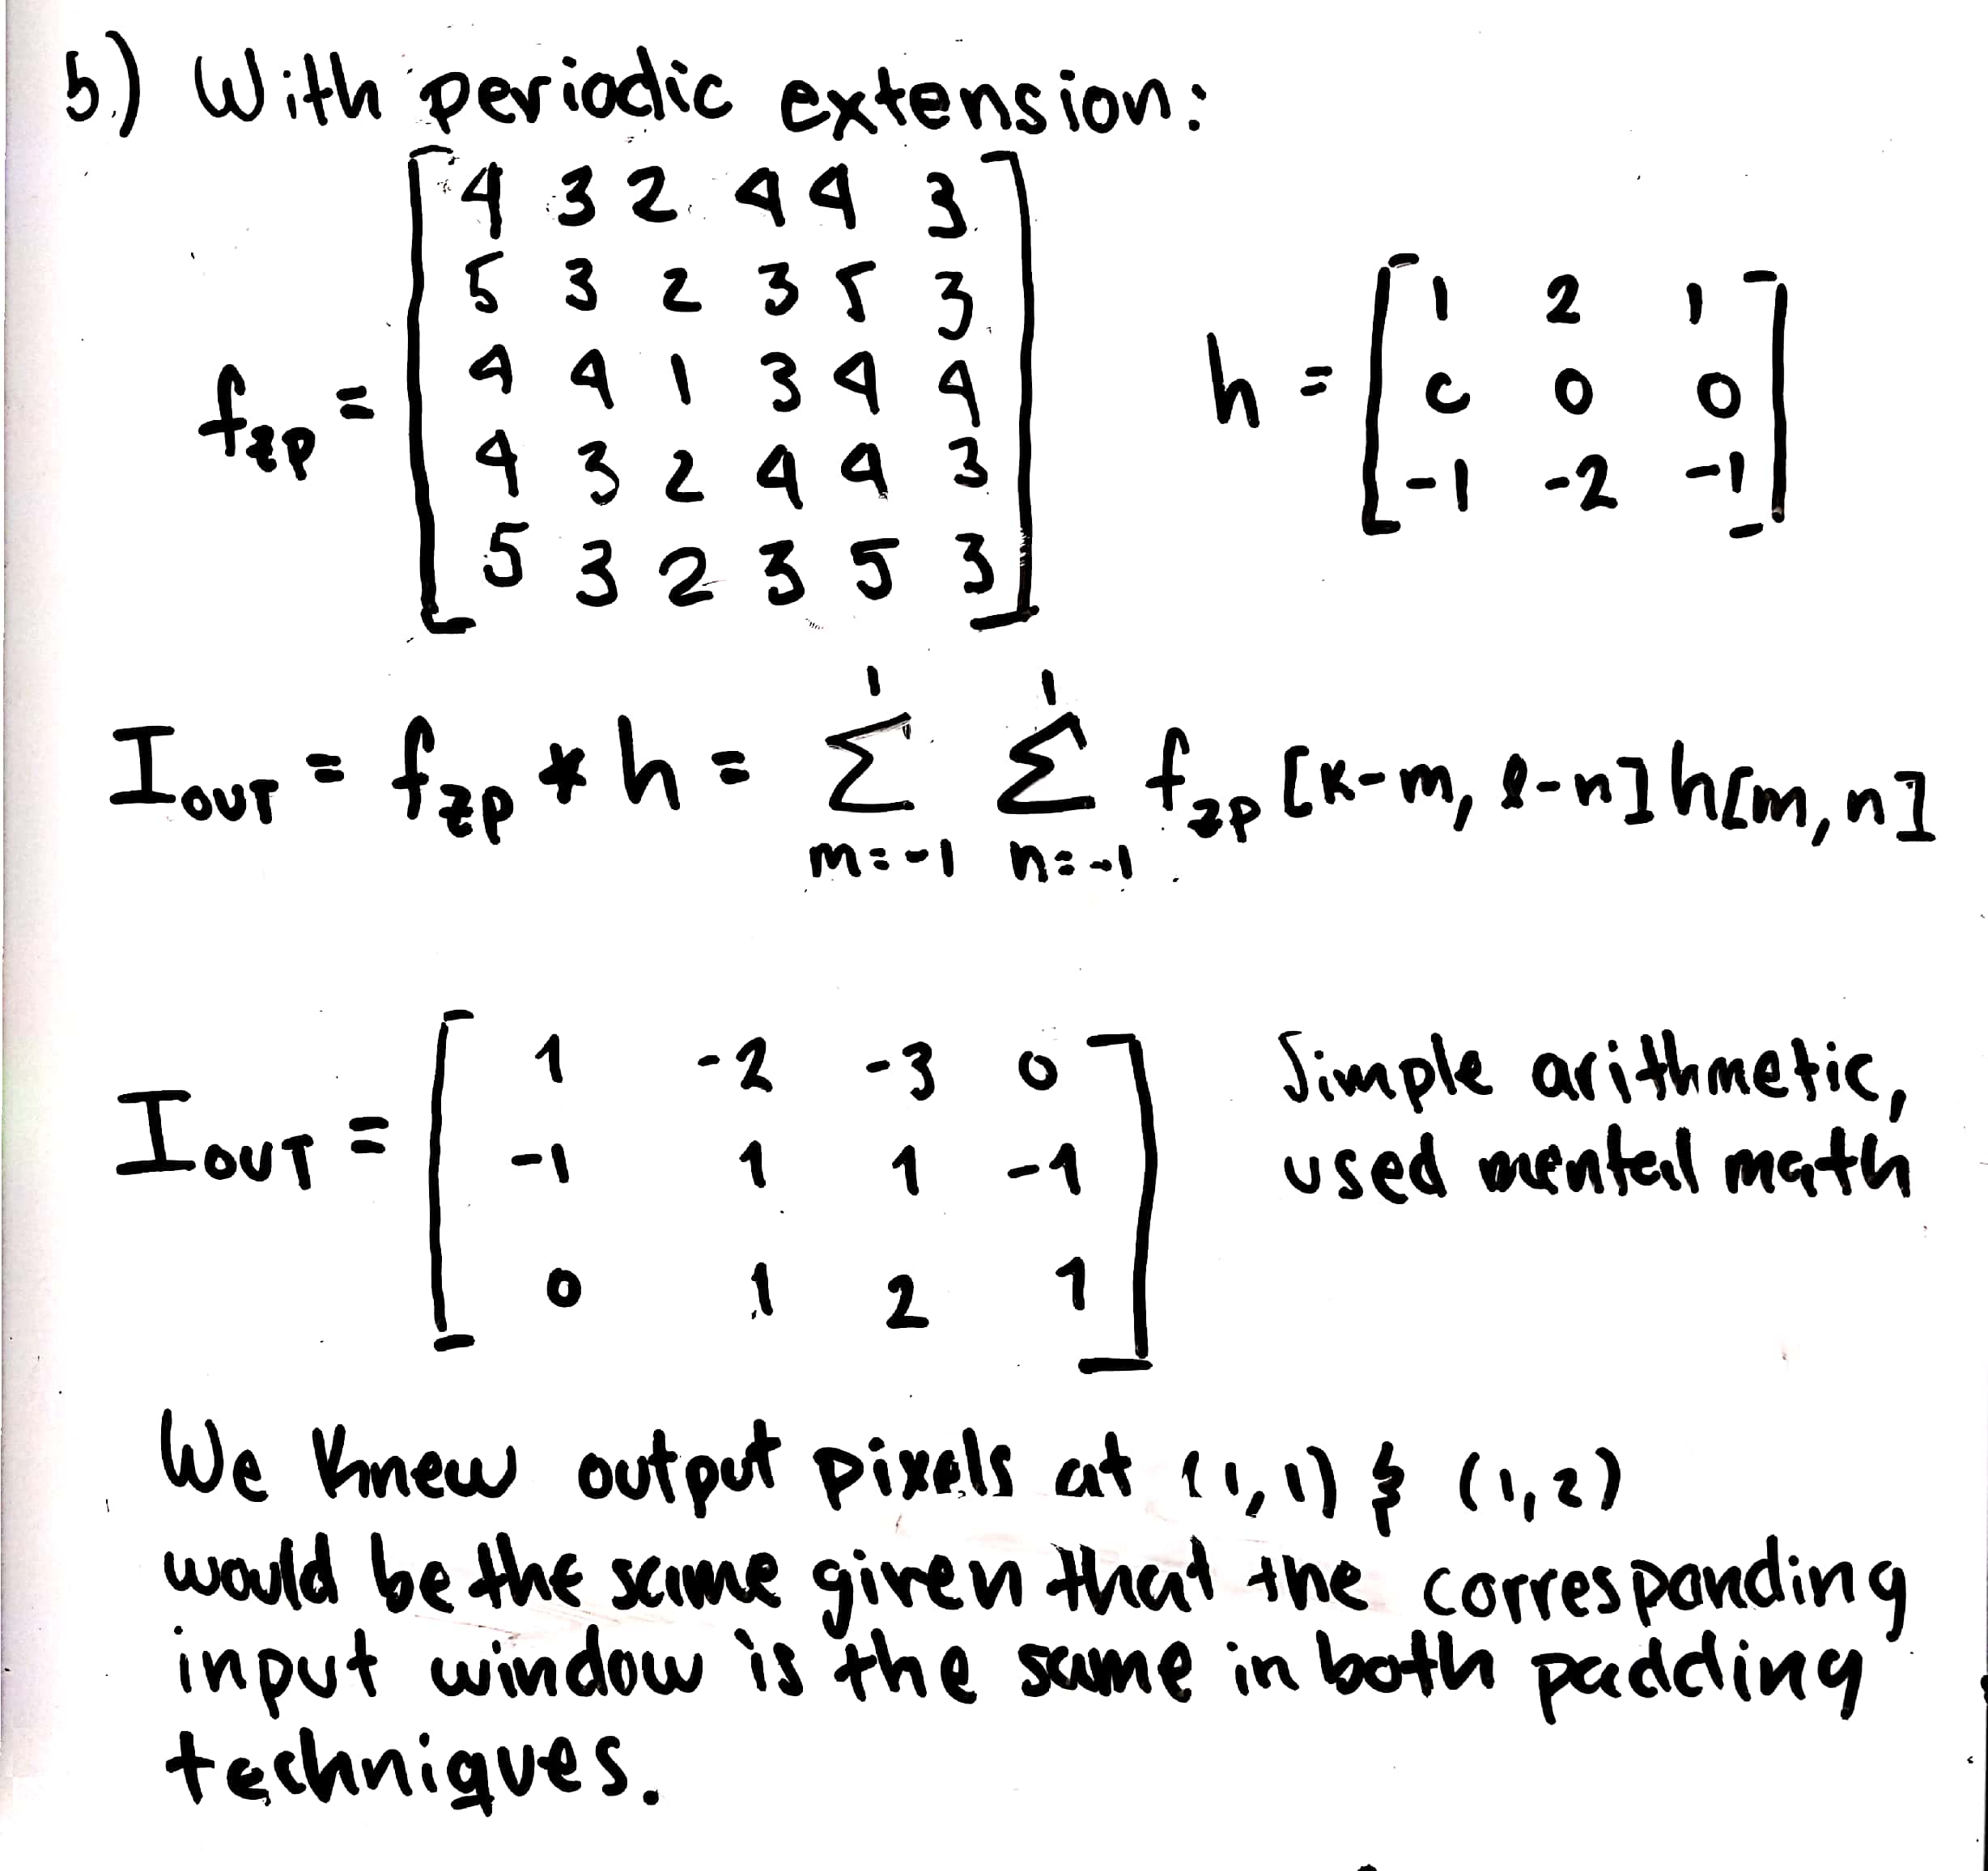 5.) With periodic extension:
4 3 2 4 4 3
5 3 2 3 5 3
f_zp = 4 4 1 3 4 4
4 3 2 4 4 3
5 3 2 3 5 3
1 2 1
h = 0 0 0
-1 -2 -1
I_OUT = f_zp * h = Σ_{m=-1}^{1} Σ_{n=-1}^{1} f_zp [k-m, l-n] h[m,n]
1 -2 -3 0
I_OUT = -1 1 1 -1
0 1 2 1
Simple arithmetic,
used mental math
We knew output pixels at (1,1) & (1,2)
would be the same given that the corresponding
input window is the same in both padding
techniques.